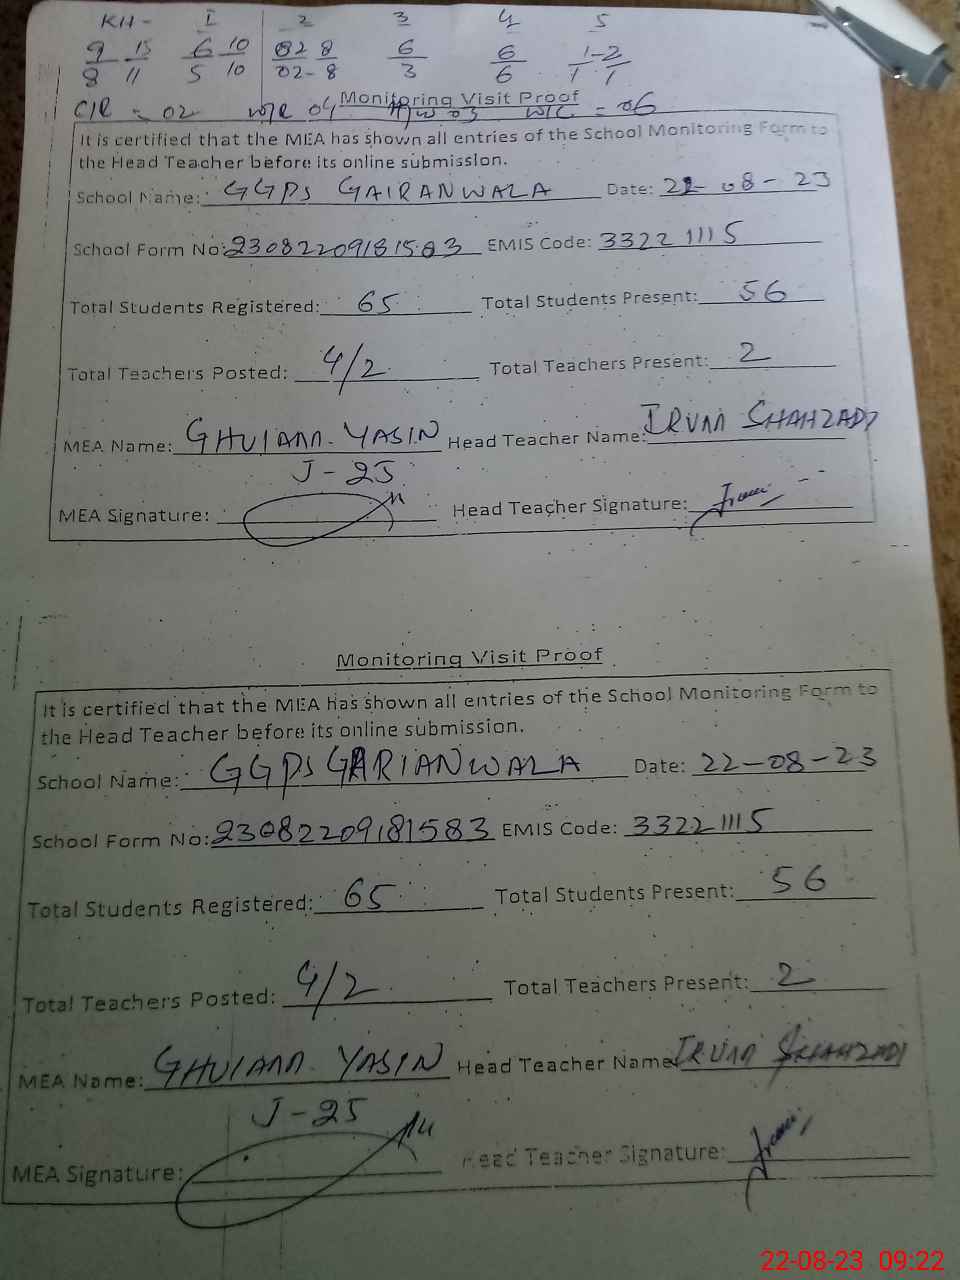 KH- 1 2 3 4 5
9/8 15/11 6/5 10/10 02/02 - 8/8 6/3 6/6 1-2/1 1
C/R = 02 W/R 04 H/W 03 W/C = 06
Monitoring Visit Proof
It is certified that the MEA has shown all entries of the School Monitoring Form to
the Head Teacher before its online submission.
School Name: GGPS GAIRANWALA Date: 22-08-23
School Form No: 23082209181583 EMIS Code: 33221115
Total Students Registered: 65 Total Students Present: 56
Total Teachers Posted: 4/2 Total Teachers Present: 2
MEA Name: GHULAM YASIN Head Teacher Name: IRUM SHAHZADI
J-25
MEA Signature: Head Teacher Signature: Irum
Monitoring Visit Proof
It is certified that the MEA has shown all entries of the School Monitoring Form to
the Head Teacher before its online submission.
School Name: GGPS GARIANWALA Date: 22-08-23
School Form No: 230822091815 83 EMIS Code: 33221115
Total Students Registered: 65 Total Students Present: 56
Total Teachers Posted: 4/2 Total Teachers Present: 2
MEA Name: GHULAM YASIN Head Teacher Name: IRUM SHAHZADI
J-25
MEA Signature: Head Teacher Signature: Irum
22-08-23 09:22